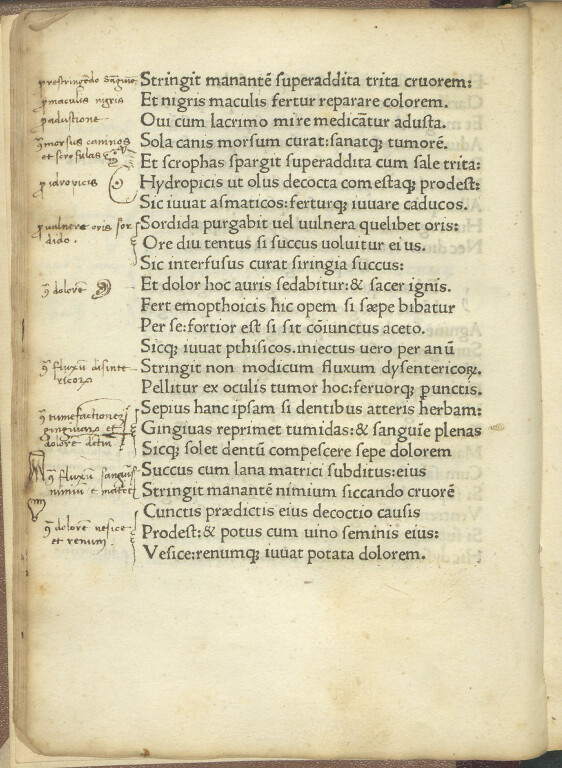 Stringit manantē superaddita trita cruorem:
Et nigris maculis fertur reparare colorem.
Oui cum lacrimo mire medicātur adusta.
Sola canis morsum curat:sanatq; tumorē.
Et scrophas spargit superaddita cum sale trita:
Hydropicis ut olus decocta comestaq; prodest:
Sic iuuat asmaticos:ferturq; iuuare caducos.
Sordida purgabit uel uulnera quelibet oris:
Ore diu tentus si succus uoluitur eius.
Sic interfusus curat siringia succus:
Et dolor hoc auris sedabitur:& sacer ignis.
Fert emopthoicis hic opem si sæpe bibatur
Per se:fortior est si sit cōiunctus aceto.
Sicq; iuuat pthisicos.iniectus uero per anū
Stringit non modicum fluxum dysentericoꝝ.
Pellitur ex oculis tumor hoc:feruorq; punctis.
Sepius hanc ipsam si dentibus atteris herbam:
Gingiuas reprimet tumidas:& sanguīe plenas
Sicq; solet dentū compescere sepe dolorem
Succus cum lana matrici subditus:eius
Stringit manantē nimium siccando cruorē
Cunctis prædictis eius decoctio causis
Prodest:& potus cum uino seminis eius:
Vesice:renumq; iuuat potata dolorem.
maculis nigris
adustione
morsus caninos
et scrofulas
idropicis
vulnere oris sor
dido.
dolorē
fluxū disinte
ricoꝝ
tumefactionē
gingiuarū et
dolorē dētiū
fluxū sanguīs
nimiū
dolorē vesice
et renum.